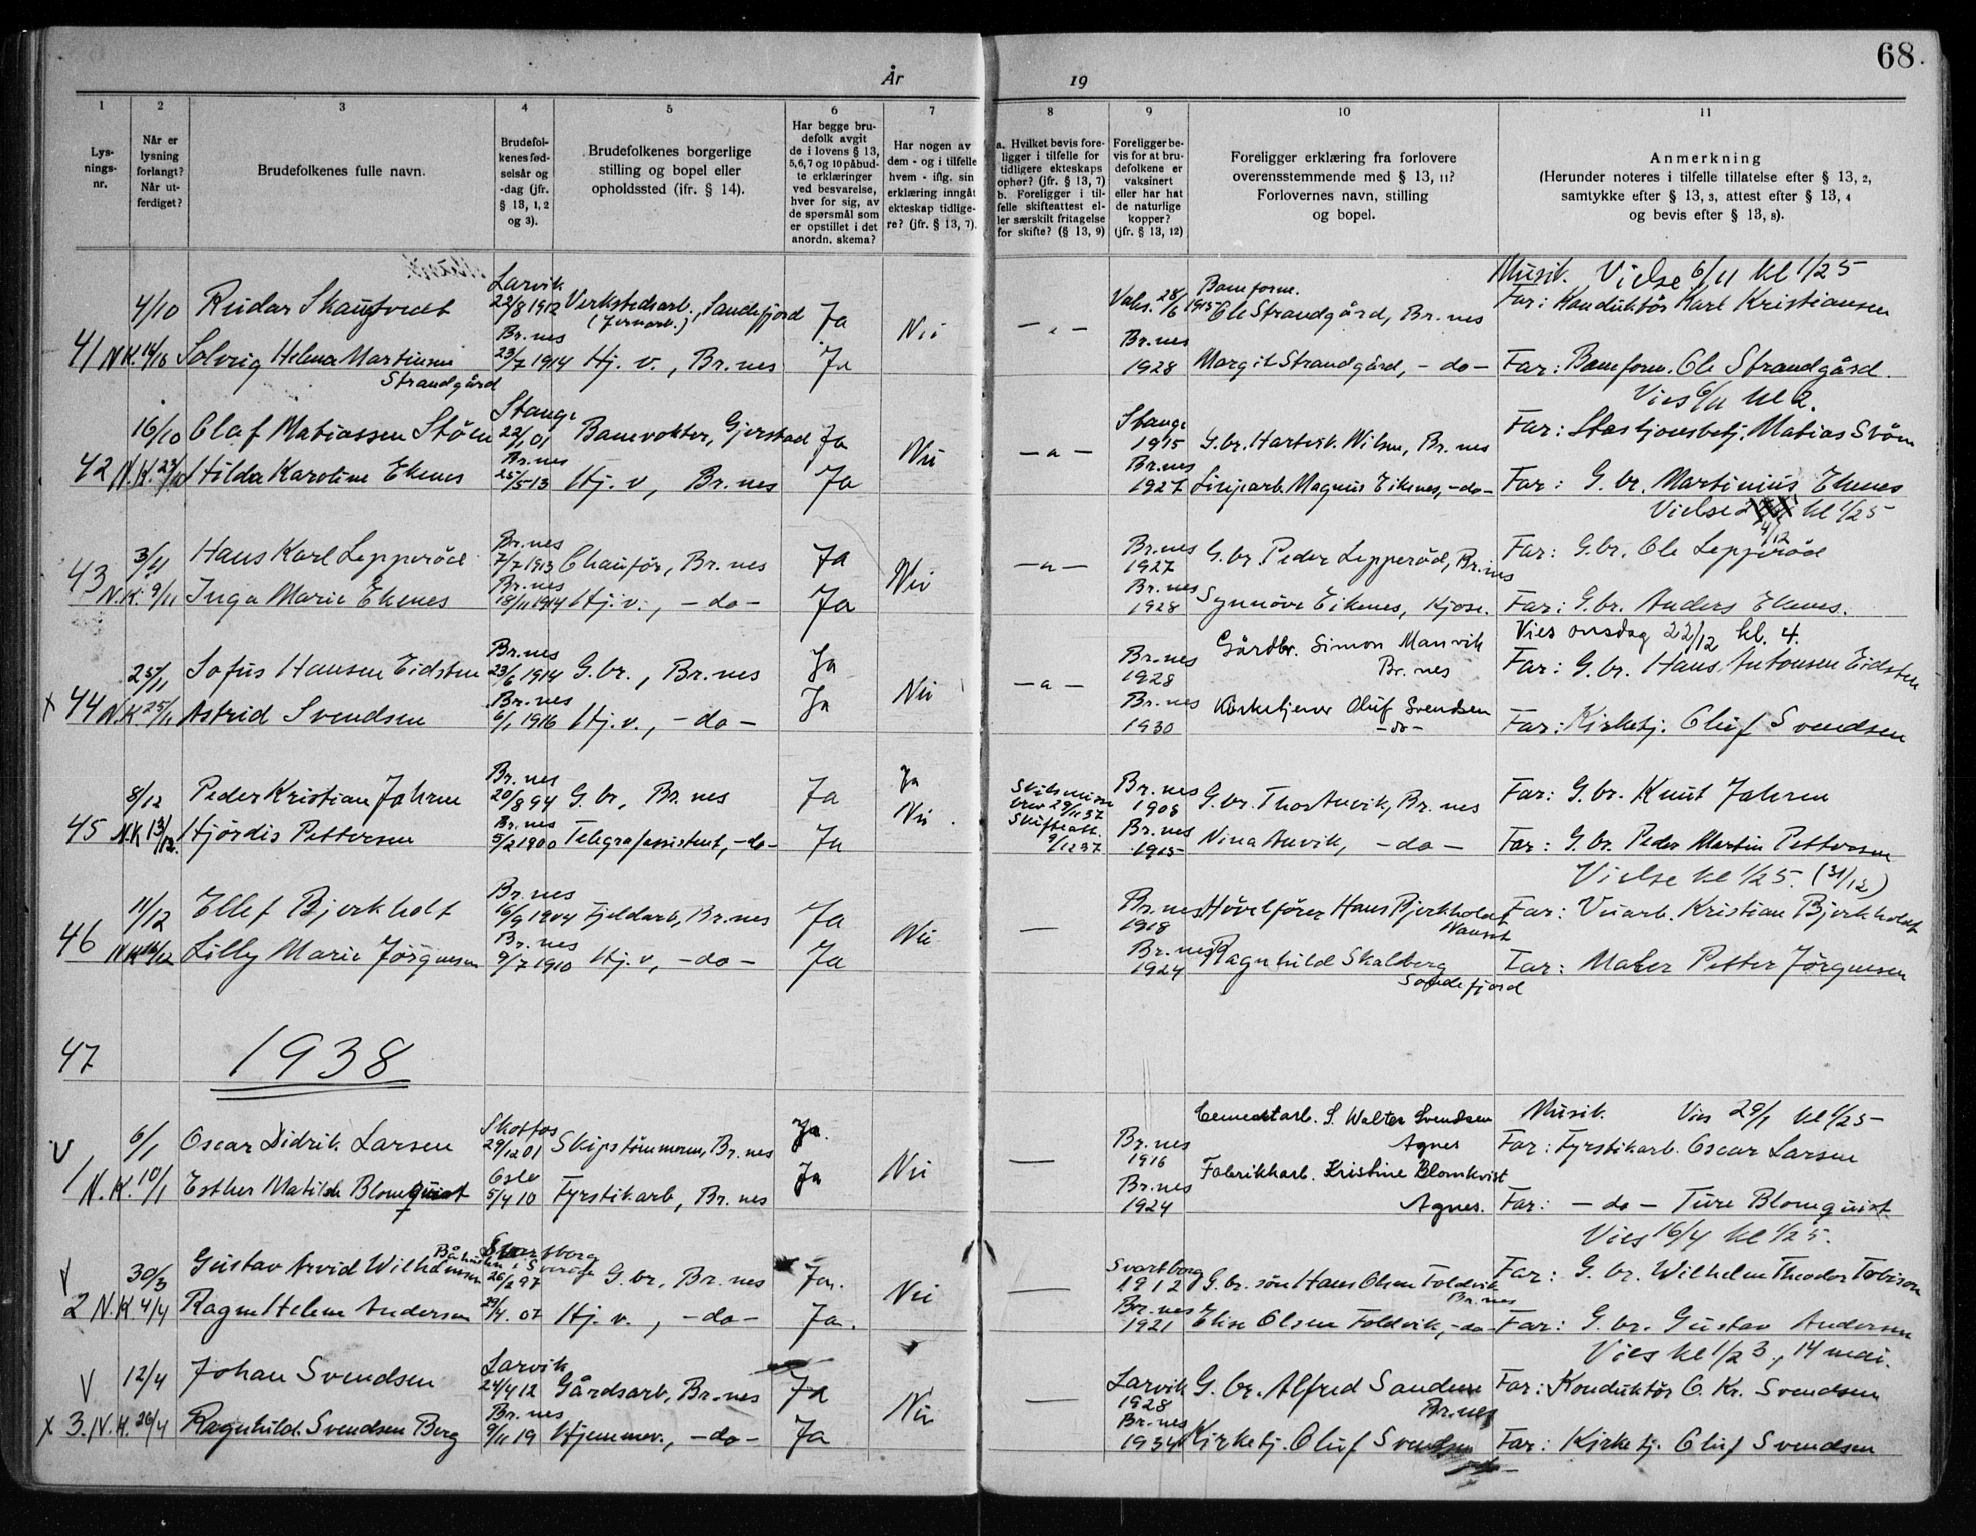 68.
År 19
1 2 3 4 5 6 7 8 9 10 11
Lys-
nings-
nr.
Når er
lysning
forlangt?
Når ut-
ferdiget?
Brudefolkenes fulle navn.
Brudefol-
kenes fød-
selsår og
-dag (jfr.
§ 13, 1, 2
og 3).
Brudefolkenes borgerlige
stilling og bopel eller
opholdssted (ifr. § 14).
Har begge bru-
defolk avgit
de i lovens § 13,
5,6,7 og 10 påbud-
te erklæringer
ved besvarelse,
hver for sig, av
de spørsmål som
er opstillet i det
anordn. skema?
Har nogen av
dem - og i tilfelle
hvem - iflg. sin
erklæring inngått
ekteskap tidlige-
re? (jfr. § 13, 7).
a. Hvilket bevis fore-
ligger i tilfelle for
tidligere ekteskaps
ophør? (jfr. § 13, 7)
b. Foreligger i til-
felle skifteattest el-
ler særskilt fritagelse
for skifte? (§ 13, 9)
Foreligger be-
vis for at bru-
defolkene er
vaksinert
eller har hat
de naturlige
kopper?
(jfr. § 13, 12)
Foreligger erklæring fra forlovere
overensstemmende med § 13, 11?
Forlovernes navn, stilling
og bopel.
Anmerkning
(Herunder noteres i tilfelle tillatelse efter § 13, 2,
samtykke efter § 13, 3, attest efter § 13, 4
og bevis efter § 13, 8).
Larvik Baneform. Musik. Vielse 6/11 kl 1/2 5
4/10 Reidar Skaugtvedt 22/8 1912 Verkstedsarb., Sandefjord Ja Nei Vaks. 28/6 1915 Ole Strandgård, Br.nes Far: Konduktør Karl Kristiansen
(Jernarb.)
Br.nes Br.nes
41 N.K. 14/10 Solveig Helena Martinsen 23/7 1914 Hj. v., Br.nes Ja 1928 Margit Strandgård, -do- Far: Baneform. Ole Strandgård.
Strandgård
Stange Stange Vies 6/11 kl 2.
16/10 Olaf Matiassen Støen 22/1 01 Banevokter, Gjerstad Ja Nei -"- 1915 G.br. Hartvik Nilsen, Br.nes Far: Stasjonsbetj. Matias Støen
Br.nes Br.nes
42 N.K. 23/10 Hilda Karoline Ekenes 25/5 13 Hj. v, Br.nes Ja 1927 Linjearb. Magnus Eikenes, -do- Far: G. br. Martinius Ekenes
Vielse kl 1/2 5
4/12
Br.nes Br.nes
3/11 Hans Karl Lepperød 7/7 1913 Chaufør, Br.nes Ja Nei -"- 1927 G.br Peder Lepperød, Br.nes Far: G.br. Ole Lepperød
Br.nes Br.nes
43 N.K. 9/11 Inga Marie Ekenes 18/11 1914 Hj. v., -do- Ja 1928 Synnøve Eikenes, Kjose. Far: G.br. Anders Ekenes.
Br.nes Gårdbr. Simon Manvik Vies onsdag 22/12 kl. 4.
25/11 Sofus Hansen Eidsten 23/6 1914 G.br., Br.nes Ja Nei -"- Br.nes 1928 Br.nes Far: G.br. Hans Antonsen Eidsten
Br.nes Br.nes
x 44 N.K 25/11 Astrid Svendsen 6/1 1916 Hj.v., -do- Ja 1930 Kirketjener Oluf Svendsen -do- Far: Kirketj. Oluf Svendsen
Br.nes Ja Br.nes
8/12 Peder Kristian Jahren 20/8 94 G. br, Br.nes Ja Nei. 29/11 37 1908 G.br. Thor Anvik, Br.nes Far: G.br. Knut Jahren
Br.nes Skifteatt. Br.nes
45 N.K 13/12. Hjørdis Pettersen 5/2 1900 Telegrafassistent, -do- Ja 9/12 37 1915 Nina Anvik, -do- Far: G.br. Peder Martin Pettersen
Vielse kl 1/2 5. (31/12)
Br.nes Br.nes
11/12 Ellef Bjerkholt 16/9 1904 Fjeldarb, Br.nes Ja Nei — 1918 Høvelfører Hans Bjerkholdt Far: Vearb. Kristian Bjerkholdt
Nanset
Br.nes Br.nes
46 N.K 16/12 Lilly Marie Jørgensen 9/7 1910 Hj. v, -do- Ja 1924 Ragnhild Skalberg Far: Maler Petter Jørgensen
Sandefjord
47 1938
Skotfos Cementarb. S. Walter Svendsen Musik. Vies 29/1 kl 1/2 5
V 6/1 Oscar Didrik Larsen 29/12 01 Skipstømmerm, Br.nes Ja. Nei — Br.nes 1916 Agnes Far: Fyrstikarb. Oscar Larsen
Oslo Fabrikkarb. Kristine Blomkvist
1 N.K. 10/1 Esther Matilde Blomquist 5/4 10 Fyrstikarb, Br.nes Ja Br.nes 1924 Agnes. Far: -do- Ture Blomquist
Vies 16/4 kl 1/2 5.
Svartborg
Båhuslen i Sverige Svartborg
V 30/3 Gustav Arvid Wilhelmsen 26/2 97 G. br, Br.nes Ja. Nei — 1912 G.br. søn Hans Olsen Foldvik Far: G. br. Wilhelm Theodor Tobison
Br.nes Br.nes
2 N.K 4/4 Ragna Helene Andersen 29/4. 07 Hj. v., -do- Ja. 1921 Elise Olsen Foldvik, -do- Far: G. br. Gustav Andersen
Vies kl 1/2 3., 14 mai.
Larvik Larvik
V 12/4 Johan Svendsen 24/4 12 Gårdsarb, Br.nes Ja Nei — 1928 G. br. Alfred Sandene Far: Konduktør O. Kr. Svendsen
Br.nes Br.nes Br.nes
x 3. N.K. 26/4 Ragnhild Svendsen Berg 9/11 19 Hjemmev., -do- Ja 1934 Kirketj. Oluf Svendsen Far: Kirketj. Oluf Svendsen
-do-